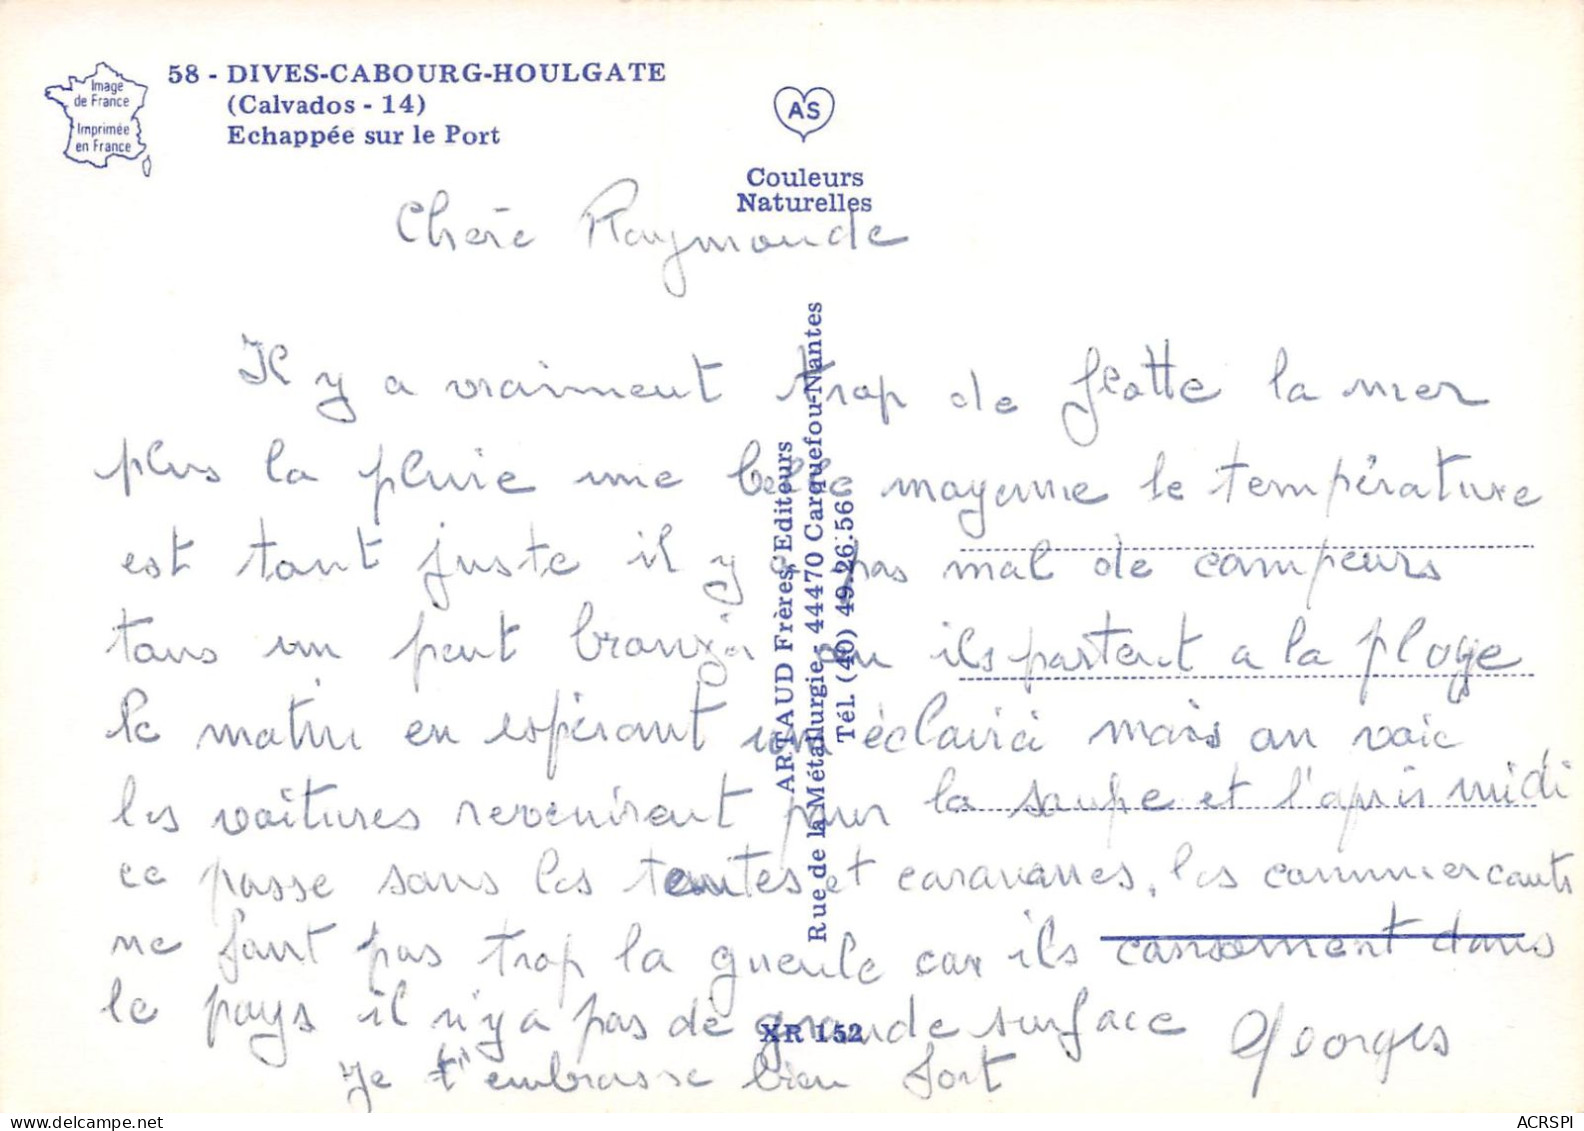 58 - DIVES-CABOURG-HOULGATE
(Calvados - 14)
Echappée sur le Port
Image
de France
Imprimée
en France
AS
Couleurs
Naturelles
Chère Raymonde
Il y a vraiment trop de flotte la mer
plus la pluie une belle moyenne le température
est tout juste il y a pas mal de campeurs
tous un peut bronzé ils partent a la plage
le matin en espérant une éclairci mais on voie
les voitures revenirent pour la soupe et l'après midi
ce passe sous les tentes et caravanes, les commercants
ne font pas trop la gueule car ils consomment dans
le pays il n'y a pas de grande surface
Georges
Je t'embrasse bien fort
ARTAUD Frères, Editeurs
Rue de la Métallurgie - 44470 Carquefou-Nantes
Tél. (40) 49.26.56
XR 152
ACRSPI